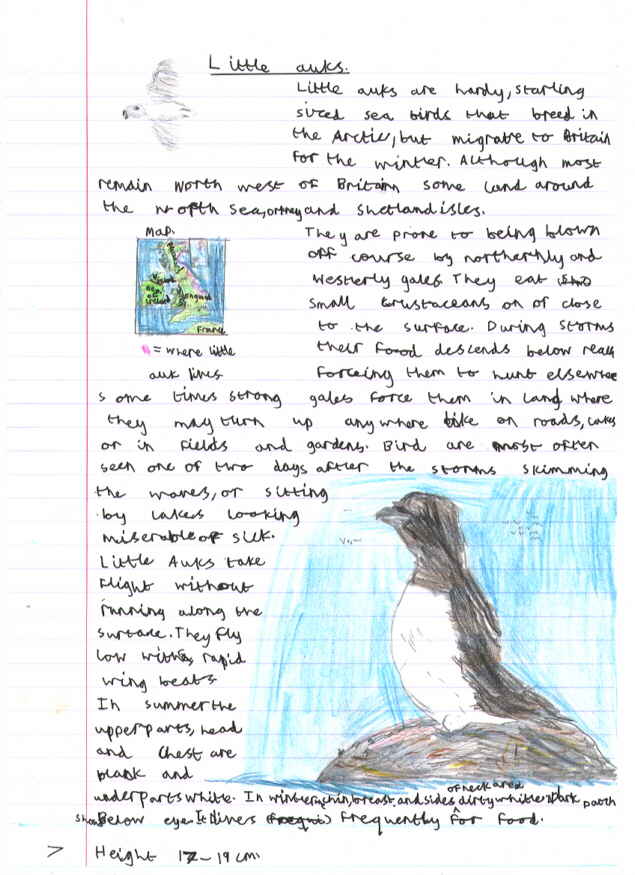 Little auks.
Little auks are hardy, starling
sized sea birds that breed in
the Arctic, but migrate to Britain
for the winter. Although most
remain North west of Britain some land around
the north sea, orkney and shetland isles.
Map.
They are prone to being blown
off course by northerhly and
westerly gales. They eat
small crustaceans on of close
to the surface. During storms
their food descends below reach
forceing them to hunt elsewhere
England
France
= where little
auk lives
some times strong gales force them in land where
they may turn up anywhere like on roads, lakes
or in fields and gardens. Bird are most often
seen one of two days after the storms skimming
the waves, or sitting
by lakes looking
miserable of sick.
Little Auks take
flight without
running along the
surface. They fly
low with rapid
wing beats
In summer the
upperparts, head
and chest are
blank and
of neck area
underparts white. In winter, chin, breast, and sides dirty white. Dark patch
Below eye. It divers frequently for food.
> Height 17-19 cm.